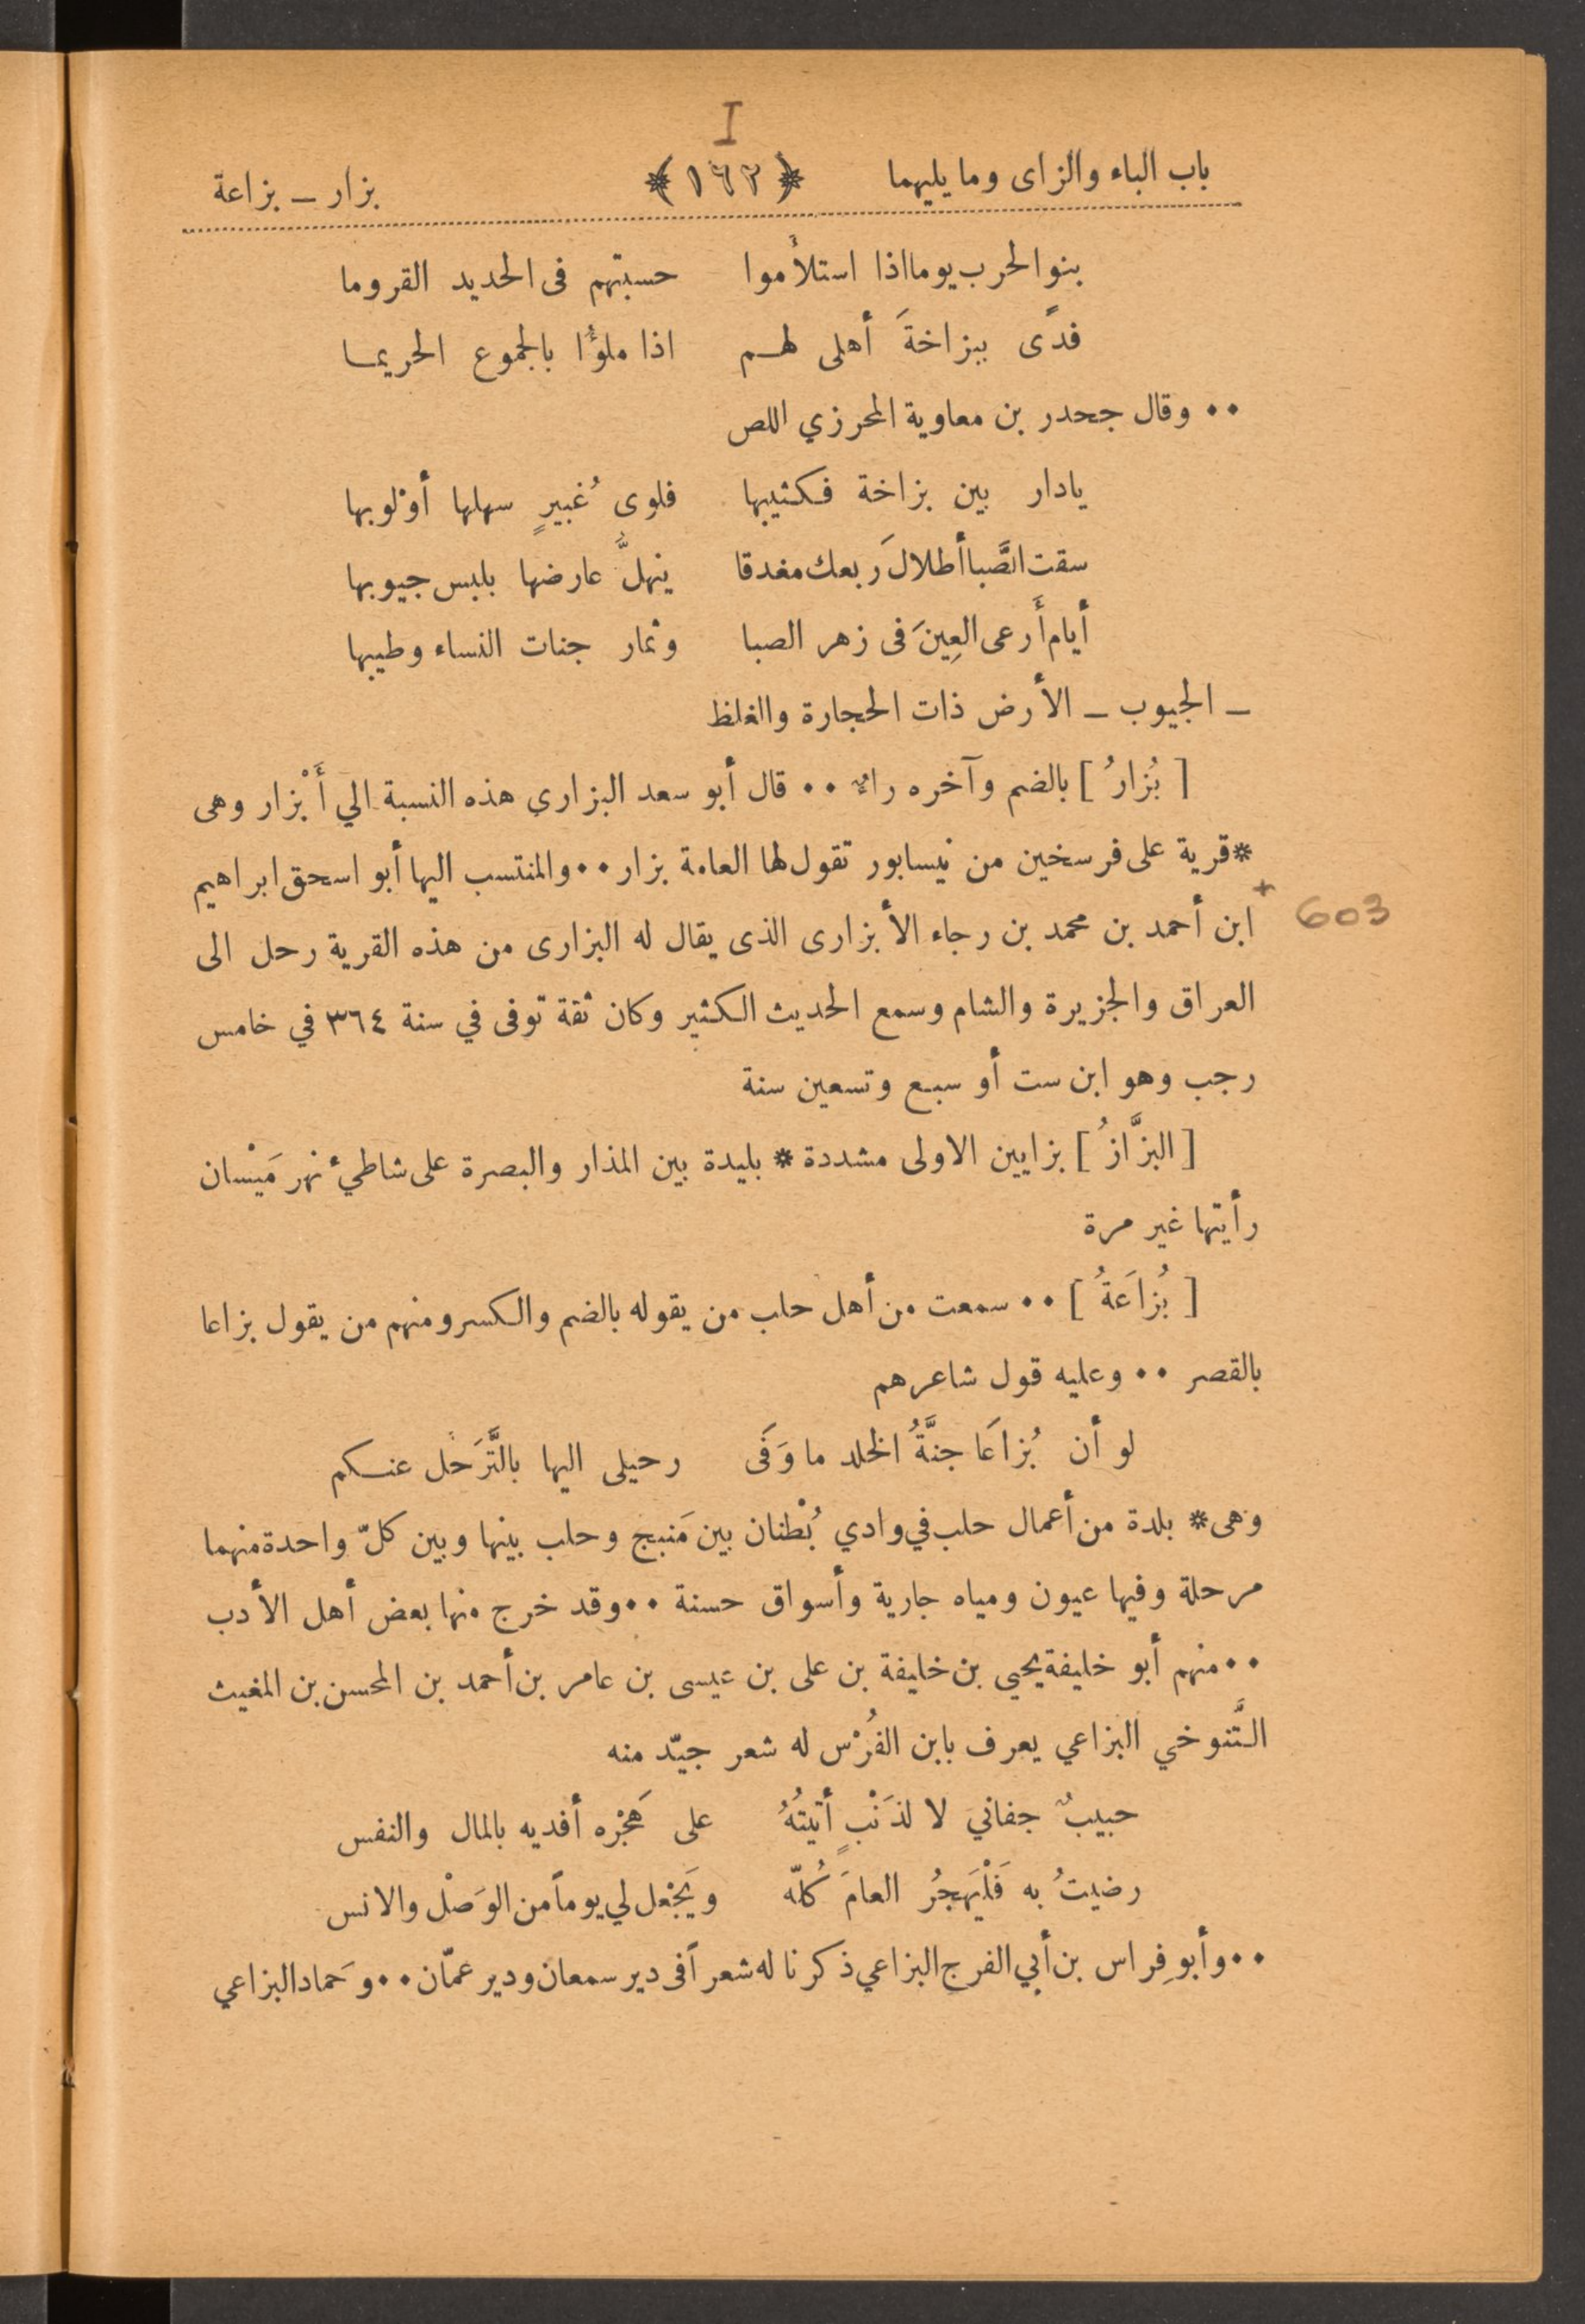 I
باب الباء والزاى وما يليهما ﴿١٦٢﴾ بزار ــ بزاعة
بنو الحرب يوما اذا استلأموا حسبتهم فى الحديد القروما
فدًى ببزاخةَ أهلى لهم اذا ملؤُا بالجموع الحريما
٠٠ وقال جحدر بن معاوية المحرزي اللص
يادار بين بزاخة فكثيبها فلوى ُغبيرٍ سهلها أوْلوبها
سقت الصَّبا أطلالَ ربعك مغدقا ينهلُّ عارضها بلبس جيوبها
أيام أَرعى العِينَ فى زهر الصبا وثمار جنات النساء وطيبها
ــ الجيوب ــ الأرض ذات الحجارة والغلظ
[ بُزارُ ] بالضم وآخره راءٌ ٠٠ قال أبو سعد البزارى هذه النسبة الي أَبْزار وهى
* قرية على فرسخين من نيسابور تقول لها العامة بزار ٠٠ والمنتسب اليها أبو اسحق ابراهيم
+ ابن أحمد بن محمد بن رجاء الأبزارى الذى يقال له البزارى من هذه القرية رحل الى
603
العراق والجزيرة والشام وسمع الحديث الكثير وكان ثقة توفى في سنة ٣٦٤ في خامس
رجب وهو ابن ست أو سبع وتسعين سنة
[ البزَّازُ ] بزايين الاولى مشددة * بليدة بين المذار والبصرة على شاطيُّ نهر مَيْسان
رأيتها غير مرة
[ بُزاَعَةُ ] ٠٠ سمعت من أهل حلب من يقوله بالضم والكسر ومنهم من يقول بزاعا
بالقصر ٠٠ وعليه قول شاعرهم
لو أن بُزاَعَا جنَّةُ الخلد ما وَفَى رحيلى اليها بالتَّرَحل عنكم
وهى * بلدة من أعمال حلب في وادي بُطْنان بين مَنبج وحلب بينها وبين كلّ واحدة منهما
مرحلة وفيها عيون ومياه جارية وأسواق حسنة ٠٠ وقد خرج منها بعض أهل الأدب
٠٠ منهم أبو خليفة يحيى بن خليفة بن على بن عيسى بن عامر بن أحمد بن المحسن بن المغيث
التَّنوخي البزاعي يعرف بابن الفُرْس له شعر جيّد منه
حبيبٌ جفاني لا لذَنْبٍ أتيتُهُ على هَجْرِه أفديه بالمال والنفس
رضيتُ به فَلْيَهجُرُ العامَ كُلّه ويَجْعل لي يوماً من الوَصْل والانس
٠٠ وأبو فِراس بن أبي الفرج البزاعي ذكرنا له شعراً فى دير سمعان ودير عمّان ٠٠ وحَماد البزاعي